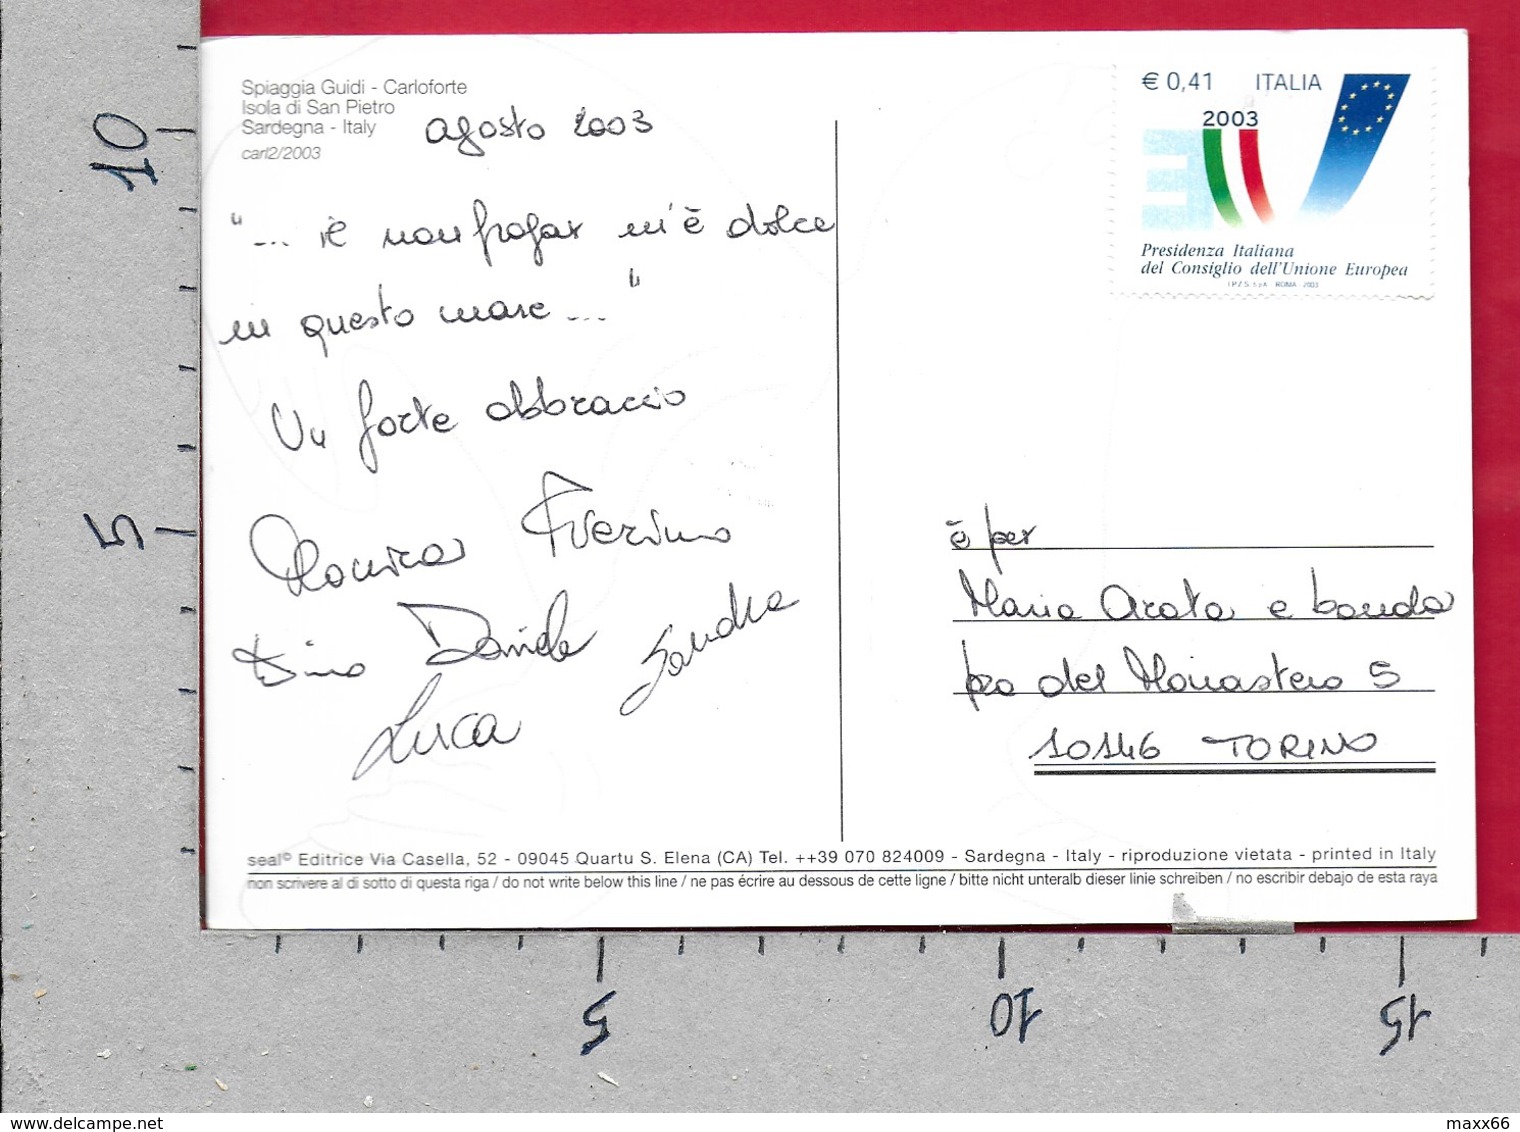 Spiaggia Guidi - Carloforte
Isola di San Pietro
Sardegna - Italy
carl2/2003
agosto 2003
"... il naufragar m'è dolce
in questo mare ..."
Un forte abbraccio
Monica Severino
Dino Daniela Sandra
Luca
€ 0,41 ITALIA
2003
Presidenza Italiana
del Consiglio dell'Unione Europea
I.P.Z.S. S.p.A. - ROMA - 2003
è per
Maria Arata e banda
pza del Monastero 5
10146 TORINO
seal© Editrice Via Casella, 52 - 09045 Quartu S. Elena (CA) Tel. ++39 070 824009 - Sardegna - Italy - riproduzione vietata - printed in Italy
non scrivere al di sotto di questa riga / do not write below this line / ne pas écrire au dessous de cette ligne / bitte nicht unteralb dieser linie schreiben / no escribir debajo de esta raya
10
5
5
10
15
www.delcampe.net
maxx66